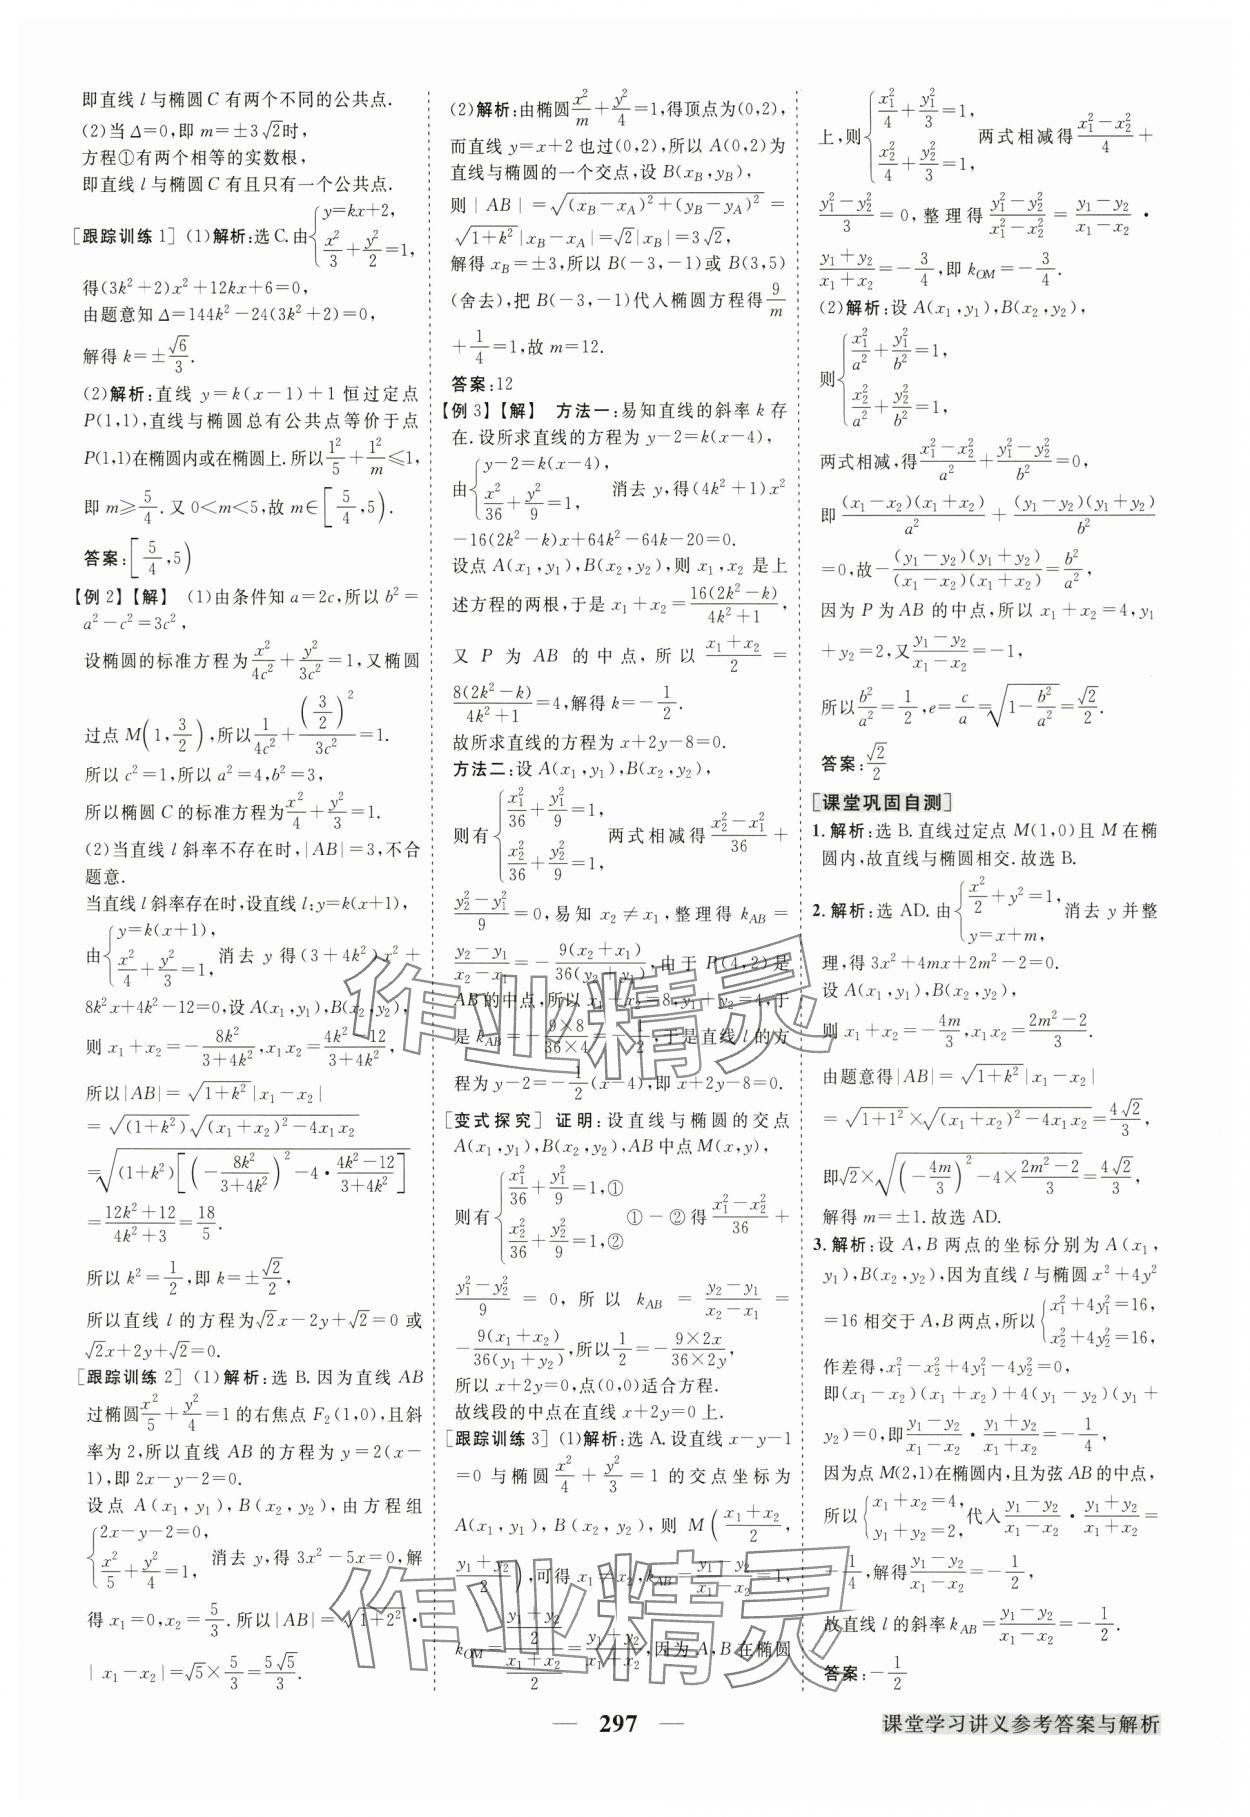 即直线 l 与椭圆 C 有两个不同的公共点.
(2)当 Δ=0,即 m=±3√2时,
方程①有两个相等的实数根,
即直线 l 与椭圆 C 有且只有一个公共点.
[跟踪训练 1] (1)解析:选 C.由{y=kx+2, x²/3+y²/2=1,
得(3k²+2)x²+12kx+6=0,
由题意知 Δ=144k²-24(3k²+2)=0,
解得 k=±√6/3.
(2)解析:直线 y=k(x-1)+1 恒过定点
P(1,1),直线与椭圆总有公共点等价于点
P(1,1)在椭圆内或在椭圆上.所以1²/5+1²/m≤1,
即 m≥5/4.又 0<m<5,故 m∈[5/4,5).
答案:[5/4,5)
【例 2】【解】 (1)由条件知 a=2c,所以 b²=
a²-c²=3c²,
设椭圆的标准方程为x²/4c²+y²/3c²=1,又椭圆
过点 M(1,3/2),所以1/4c²+(3/2)²/3c²=1.
所以 c²=1,所以 a²=4,b²=3,
所以椭圆 C 的标准方程为x²/4+y²/3=1.
(2)当直线 l 斜率不存在时,|AB|=3,不合
题意.
当直线 l 斜率存在时,设直线 l:y=k(x+1),
由{y=k(x+1), x²/4+y²/3=1, 消去 y 得(3+4k²)x²+
8k²x+4k²-12=0,设 A(x₁,y₁),B(x₂,y₂),
则 x₁+x₂=-8k²/(3+4k²),x₁x₂=(4k²-12)/(3+4k²),
所以|AB|=√(1+k²)|x₁-x₂|
=√(1+k²)√((x₁+x₂)²-4x₁x₂)
=√((1+k²)[(-8k²/(3+4k²))²-4·(4k²-12)/(3+4k²)])
=(12k²+12)/(4k²+3)=18/5.
所以 k²=1/2,即 k=±√2/2,
所以直线 l 的方程为√2x-2y+√2=0 或
√2x+2y+√2=0.
[跟踪训练 2] (1)解析:选 B.因为直线 AB
过椭圆x²/5+y²/4=1的右焦点 F₂(1,0),且斜
率为 2,所以直线 AB 的方程为 y=2(x-
1),即 2x-y-2=0.
设点 A(x₁,y₁),B(x₂,y₂),由方程组
{2x-y-2=0, x²/5+y²/4=1, 消去 y,得 3x²-5x=0,解
得 x₁=0,x₂=5/3.所以|AB|=√(1+2²)·
|x₁-x₂|=√5×5/3=5√5/3.
(2)解析:由椭圆x²/m+y²/4=1,得顶点为(0,2),
而直线 y=x+2 也过(0,2),所以 A(0,2)为
直线与椭圆的一个交点,设 B(x_B,y_B),
则|AB|=√((x_B-x_A)²+(y_B-y_A)²)=
√(1+k²)|x_B-x_A|=√2|x_B|=3√2,
解得 x_B=±3,所以 B(-3,-1)或 B(3,5)
(舍去),把 B(-3,-1)代入椭圆方程得9/m
+1/4=1,故 m=12.
答案:12
【例 3】【解】 方法一:易知直线的斜率 k 存
在.设所求直线的方程为 y-2=k(x-4),
由{y-2=k(x-4), x²/36+y²/9=1, 消去 y,得(4k²+1)x²
-16(2k²-k)x+64k²-64k-20=0.
设点 A(x₁,y₁),B(x₂,y₂),则 x₁,x₂ 是上
述方程的两根,于是 x₁+x₂=16(2k²-k)/(4k²+1),
又 P 为 AB 的中点,所以 (x₁+x₂)/2 =
8(2k²-k)/(4k²+1)=4,解得 k=-1/2.
故所求直线的方程为 x+2y-8=0.
方法二:设 A(x₁,y₁),B(x₂,y₂),
则有{x₁²/36+y₁²/9=1, x₂²/36+y₂²/9=1, 两式相减得(x₂²-x₁²)/36+
(y₂²-y₁²)/9=0,易知 x₂≠x₁,整理得 k_AB=
(y₂-y₁)/(x₂-x₁)=-9(x₂+x₁)/36(y₂+y₁),由于 P(4,2)是
AB 的中点,所以 x₁+x₂=8,y₁+y₂=4,于
是 k_AB=-(9×8)/(36×4)=-1/2,于是直线 l 的方
程为 y-2=-1/2(x-4),即 x+2y-8=0.
[变式探究] 证明:设直线与椭圆的交点
A(x₁,y₁),B(x₂,y₂),AB 中点 M(x,y),
则有{x₁²/36+y₁²/9=1,① x₂²/36+y₂²/9=1,② ①-②得(x₁²-x₂²)/36+
(y₁²-y₂²)/9 = 0,所以 k_AB = (y₂-y₁)/(x₂-x₁) =
-9(x₁+x₂)/36(y₁+y₂),所以1/2=-(9×2x)/(36×2y),
所以 x+2y=0,点(0,0)适合方程.
故线段的中点在直线 x+2y=0 上.
[跟踪训练 3] (1)解析:选 A.设直线 x-y-1
=0 与椭圆 x²/4+y²/3=1 的交点坐标为
A(x₁,y₁),B(x₂,y₂),则 M((x₁+x₂)/2,
(y₁+y₂)/2),可得 x₁≠x₂,k_AB=(y₁-y₂)/(x₁-x₂)=1,
k_OM=((y₁+y₂)/2)/((x₁+x₂)/2)=(y₁+y₂)/(x₁+x₂),因为 A,B 在椭圆
上,则{x₁²/4+y₁²/3=1, x₂²/4+y₂²/3=1, 两式相减得(x₁²-x₂²)/4+
(y₁²-y₂²)/3=0,整理得(y₁²-y₂²)/(x₁²-x₂²)=(y₁-y₂)/(x₁-x₂)·
(y₁+y₂)/(x₁+x₂)=-3/4,即 k_OM=-3/4.
(2)解析:设 A(x₁,y₁),B(x₂,y₂),
则{x₁²/a²+y₁²/b²=1, x₂²/a²+y₂²/b²=1,
两式相减,得(x₁²-x₂²)/a²+(y₁²-y₂²)/b²=0,
即(x₁-x₂)(x₁+x₂)/a² + (y₁-y₂)(y₁+y₂)/b²
=0,故-(y₁-y₂)(y₁+y₂)/(x₁-x₂)(x₁+x₂)=b²/a²,
因为 P 为 AB 的中点,所以 x₁+x₂=4,y₁
+y₂=2,又(y₁-y₂)/(x₁-x₂)=-1,
所以b²/a²=1/2,e=c/a=√(1-b²/a²)=√2/2.
答案:√2/2
[课堂巩固自测]
1.解析:选 B.直线过定点 M(1,0)且 M 在椭
圆内,故直线与椭圆相交.故选 B.
2.解析:选 AD.由{x²/2+y²=1, y=x+m, 消去 y 并整
理,得 3x²+4mx+2m²-2=0.
设 A(x₁,y₁),B(x₂,y₂),
则 x₁+x₂=-4m/3,x₁x₂=(2m²-2)/3.
由题意得|AB|=√(1+k²)|x₁-x₂|
=√(1+1²)×√((x₁+x₂)²-4x₁x₂)=4√2/3,
即√2×√((-4m/3)²-4×(2m²-2)/3)=4√2/3,
解得 m=±1.故选 AD.
3.解析:设 A,B 两点的坐标分别为 A(x₁,
y₁),B(x₂,y₂),因为直线 l 与椭圆 x²+4y²
=16 相交于 A,B 两点,所以{x₁²+4y₁²=16, x₂²+4y₂²=16,
作差得,x₁²-x₂²+4y₁²-4y₂²=0,
即(x₁-x₂)(x₁+x₂)+4(y₁-y₂)(y₁+
y₂)=0,即(y₁-y₂)/(x₁-x₂)·(y₁+y₂)/(x₁+x₂)=-1/4,
因为点 M(2,1)在椭圆内,且为弦 AB 的中点,
所以{x₁+x₂=4, y₁+y₂=2, 代入(y₁-y₂)/(x₁-x₂)·(y₁+y₂)/(x₁+x₂)=
-1/4,解得(y₁-y₂)/(x₁-x₂)=-1/2,
故直线 l 的斜率 k_AB=(y₁-y₂)/(x₁-x₂)=-1/2.
答案:-1/2
作业精灵
作业精灵
— 297 —
课堂学习讲义参考答案与解析